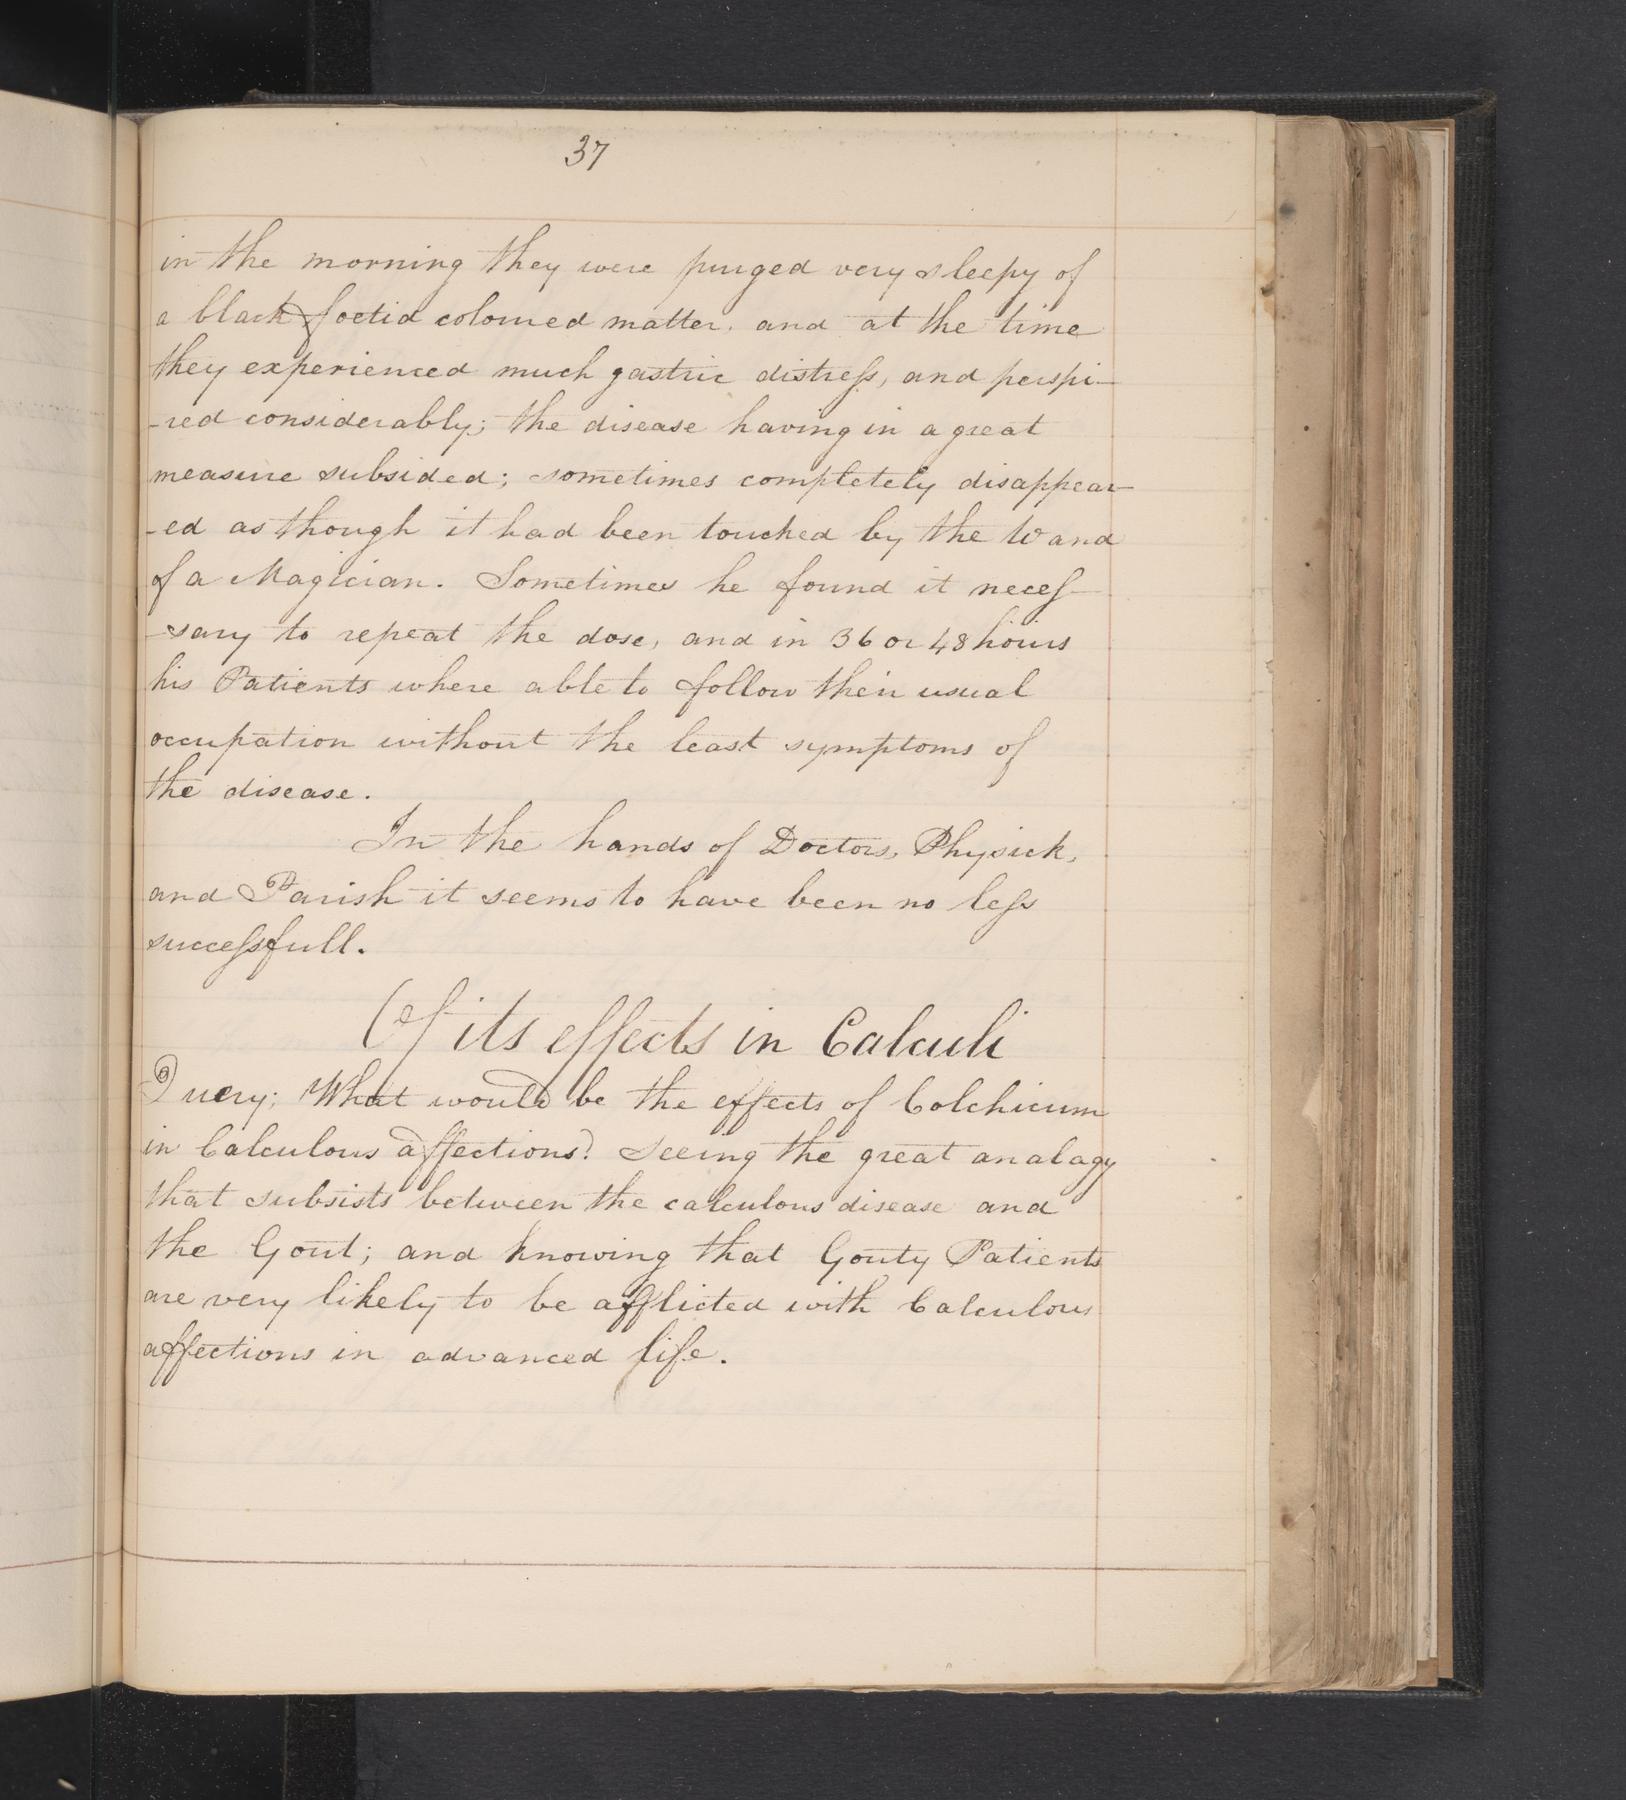 37
in the morning they were purged very sleepy of
a black foetid coloured matter, and at the time
they experienced much gastric distress, and perspi-
-red considerably; the disease having in a great
measure subsided; sometimes completely disappear-
-ed as though it had been touched by the Wand
of a Magician. Sometimes he found it neces-
-sary to repeat the dose, and in 36 or 48 hours
his Patients where able to follow their usual
occupation without the least symptoms of
the disease.
In the hands of Doctors, Physick,
and Parish it seems to have been no less
successfull.
Of its effects in Calculi
Query; What would be the effects of Colchicum
in Calculous affections? Seeing the great analagy
that subsists between the calculous disease and
the Gout; and knowing that Gouty Patients
are very likely to be afflicted with Calculous
affections in advanced life.